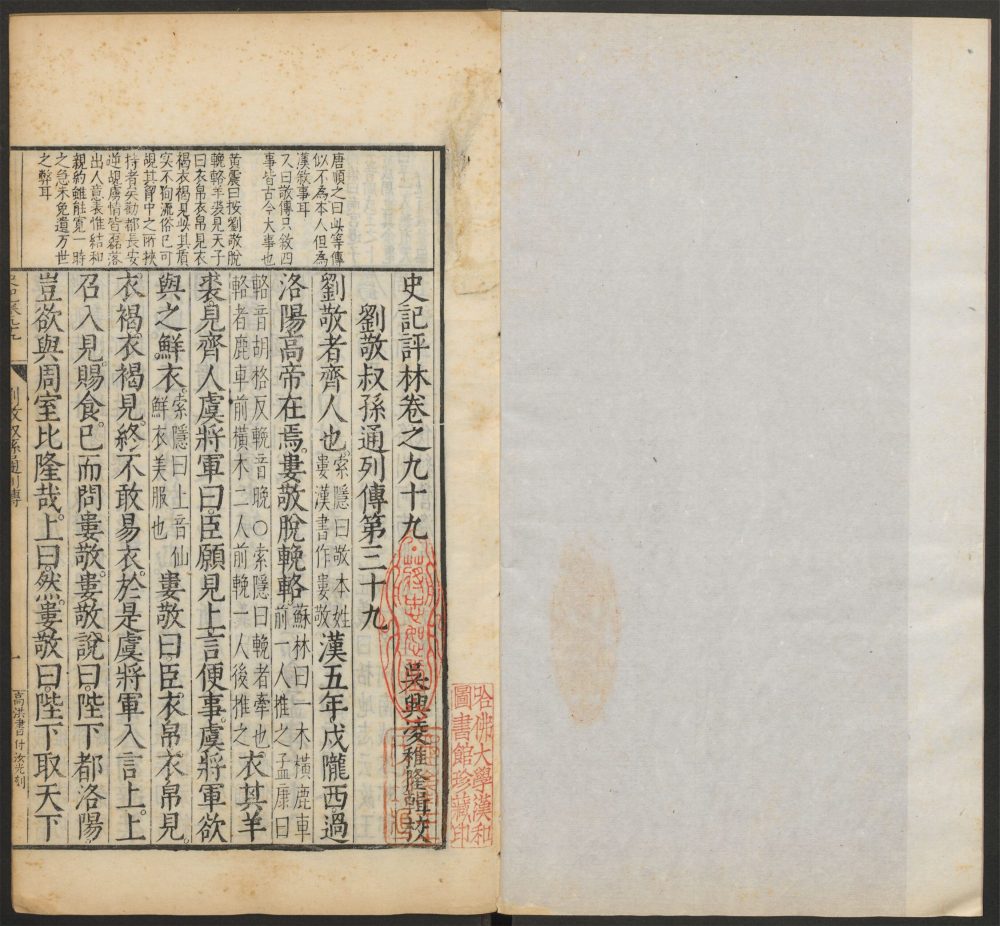 哈佛大學漢和
圖書館珍藏印
唐順之曰此等傳
似不為本人但為
漢敘事耳
又曰敬傳只敘四
事皆古今大事也
黃震曰按劉敬脫
輓輅羊裘見天子
曰衣帛衣帛見衣
褐衣褐見此其質
实不狥流俗已可
覘其胷中之所挾
持者矣勸都長安
逆覘虜情皆磊落
出人意表惟結和
親約雖能寬一時
之急未免遺万世
之弊耳
史記評林卷之九十九 吳興凌稚隆輯校
劉敬叔孫通列傳第三十九
劉敬者齊人也。索隱曰敬本姓婁漢書作婁敬漢五年戍隴西過
洛陽高帝在焉。婁敬脫輓輅。蘇林曰一木橫鹿車前一人推之孟康曰
輅音胡格反輓音晚○索隱曰輓者牽也輅者鹿車前橫木二人前輓一人後推之衣其羊
裘。見齊人虞將軍曰。臣願見上言便事。虞將軍欲
與之鮮衣。索隱曰上音仙鮮衣美服也婁敬曰臣。衣帛。衣帛見。
衣褐。衣褐見。終不敢易衣。於是虞將軍入言上。上
召入見。賜食。已而問婁敬。婁敬說曰。陛下都洛陽。
豈欲與周室比隆哉。上曰。然。婁敬曰。陛下取天下
劉敬叔孫通列傳
一
高洪書付汝光刻